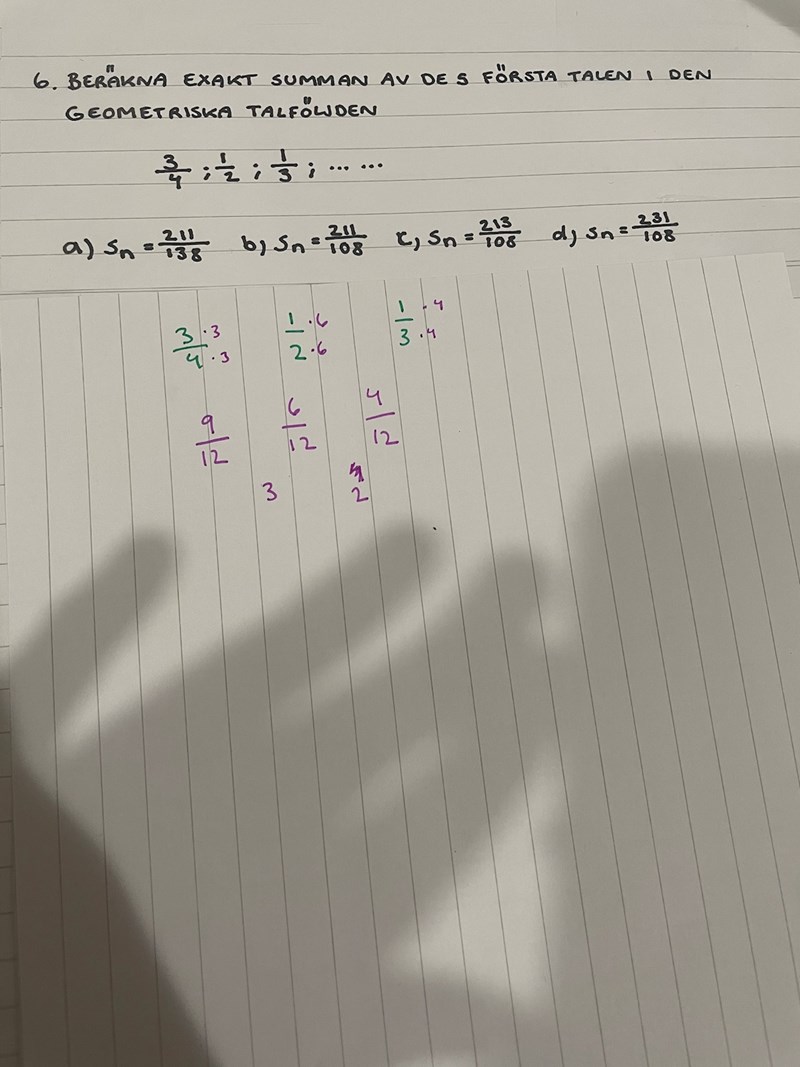 6. BERÄKNA EXAKT SUMMAN AV DE 5 FÖRSTA TALEN I DEN
GEOMETRISKA TALFÖLJDEN
3/4 ; 1/2 ; 1/3 ; ... ...
a) Sn = 211/138 b) Sn = 211/108 c) Sn = 213/108 d) Sn = 231/108
3·3/4·3 1·6/2·6 1·4/3·4
9/12 6/12 4/12
3 2